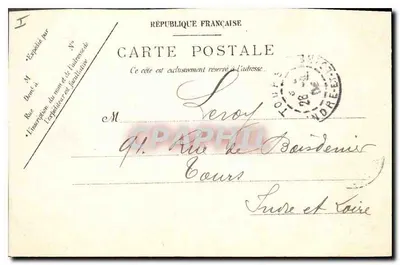 I
RÉPUBLIQUE FRANÇAISE
CARTE POSTALE
Ce côté est exclusivement réservé à l'adresse
Expédié par
M
Demt à
Rue
N°
L'inscription du nom et de l'adresse de
l'expéditeur est facultative
TOURS
INDRE-ET-
28
M Leroy
91. Rue de Boisdenier
Tours
Indre et Loire